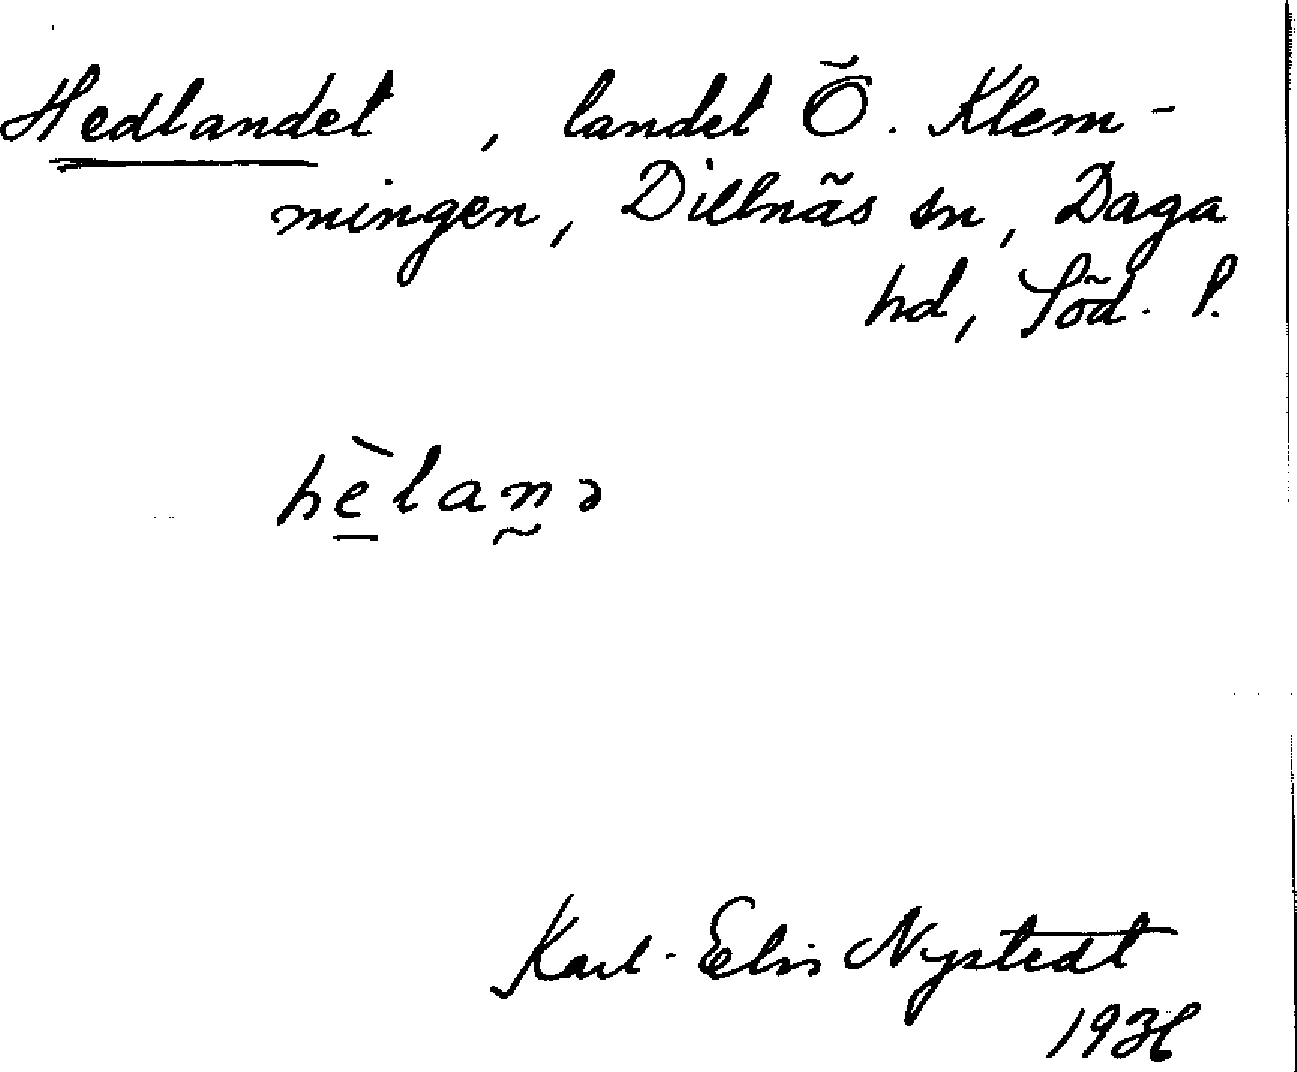 Hedlandet, landet Ö. Klem-
mingen, Dillnäs sn, Daga
hd, Söd. l.
hèlanə
Karl-Elis Nystedt
1936